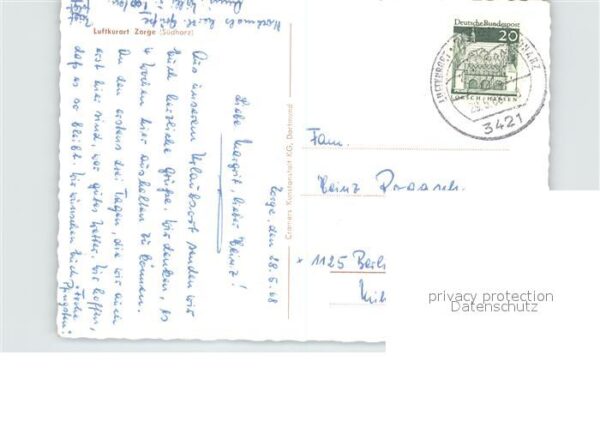 Luftkurort Zorge (Südharz)
Zorge, den 28.5.68
Liebe Margrit, lieber Heinz!
Aus unserem Urlaubsort senden wir
Euch herzliche Grüße. Wir denken, es
4 Wochen hier aushalten zu können.
In den ersten drei Tagen, die wir
erst hier sind, war gutes Wetter. Wir hoffen,
daß es so bleibt. Wir wünschen Euch frohe
Pfingsten.
Cramers Kunstanstalt KG, Dortmund
Deutsche Bundespost
20
LORSCH/HESSEN
3421
Fam.
Heinz Praasch.
1125 Berl
privacy protection
Datenschutz